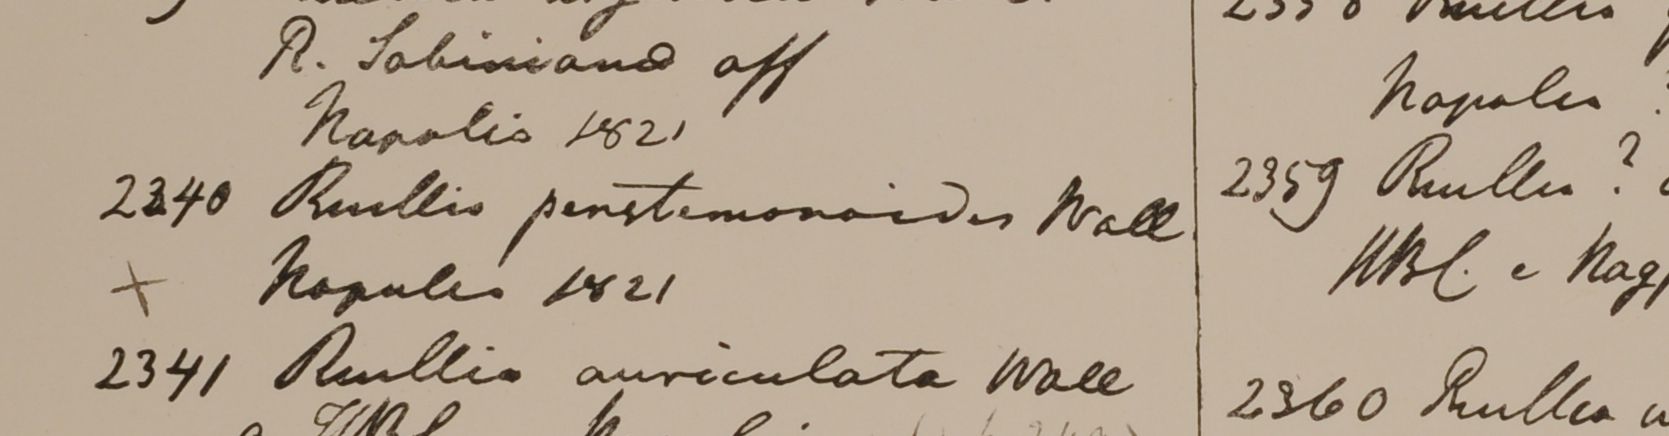 R. Sabiniana aff
Napalia 1821
2340 Ruellia penstemonoides Wall
+ Napalia 1821
2341 Ruellia auriculata Wall
2358 Ruellia
Napalia ?
2359 Ruellia ?
HBC. e Nag
2360 Ruellia